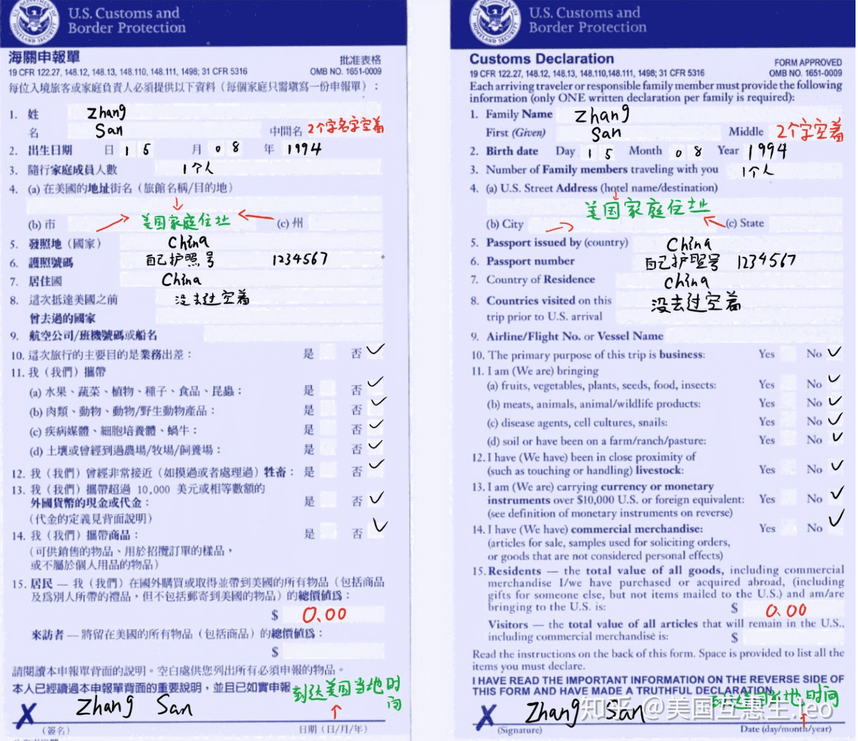 U.S. Customs and
Border Protection
海關申報單
批准表格
19 CFR 122.27, 148.12, 148.13, 148.110, 148.111, 1498; 31 CFR 5316
OMB NO. 1651-0009
每位入境旅客或家庭負責人必須提供以下資料（每個家庭只需填寫一份申報單）：
1. 姓 Zhang
名 San 中間名 2个字名字空着
2. 出生日期 日 1 5 月 0 8 年 1994
3. 隨行家庭成員人數 1个人
4. (a) 在美國的地址街名（旅館名稱/目的地）
(b) 市 美国家庭住址 (c) 州
5. 發照地（國家） China
6. 護照號碼 自己护照号 1234567
7. 居住國 China
8. 這次抵達美國之前 没去过空着
曾去過的國家
9. 航空公司/班機號碼或船名
10. 這次旅行的主要目的是業務出差： 是 否 ✓
11. 我（我們）攜帶
(a) 水果、蔬菜、植物、種子、食品、昆蟲： 是 否 ✓
(b) 肉類、動物、動物/野生動物產品： 是 否 ✓
(c) 疾病媒體、細胞培養體、蝸牛： 是 否 ✓
(d) 土壤或曾經到過農場/牧場/飼養場： 是 否 ✓
12. 我（我們）曾經非常接近（如摸過或者處理過）牲畜： 是 否 ✓
13. 我（我們）攜帶超過 10,000 美元或相等數額的
外國貨幣的現金或代金： 是 否 ✓
（代金的定義見背面說明）
14. 我（我們）攜帶商品： 是 否 ✓
（可供銷售的物品、用於招攬訂單的樣品，
或不屬於個人用品的物品）
15. 居民 — 我（我們）在國外購買或取得並帶到美國的所有物品（包括商品
及為別人所帶的禮品，但不包括郵寄到美國的物品）的總價值為：
$ 0.00
來訪者 — 將留在美國的所有物品（包括商品）的總價值為：
$
請閱讀本申報單背面的說明。空白處供您列出所有必須申報的物品。
本人已經讀過本申報單背面的重要說明，並且已如實申報 到达美国当地时间
X Zhang San
（簽名） 日期（日/月/年）
U.S. Customs and
Border Protection
Customs Declaration
FORM APPROVED
19 CFR 122.27, 148.12, 148.13, 148.110,148.111, 1498; 31 CFR 5316
OMB NO. 1651-0009
Each arriving traveler or responsible family member must provide the following
information (only ONE written declaration per family is required):
1. Family Name Zhang
First (Given) San Middle 2个字空着
2. Birth date Day 1 5 Month 0 8 Year 1994
3. Number of Family members traveling with you 1个人
4. (a) U.S. Street Address (hotel name/destination)
美国家庭住址
(b) City (c) State
5. Passport issued by (country) China
6. Passport number 自己护照号 1234567
7. Country of Residence China
8. Countries visited on this 没去过空着
trip prior to U.S. arrival
9. Airline/Flight No. or Vessel Name
10. The primary purpose of this trip is business: Yes No ✓
11. I am (We are) bringing
(a) fruits, vegetables, plants, seeds, food, insects: Yes No ✓
(b) meats, animals, animal/wildlife products: Yes No ✓
(c) disease agents, cell cultures, snails: Yes No ✓
(d) soil or have been on a farm/ranch/pasture: Yes No ✓
12. I have (We have) been in close proximity of
(such as touching or handling) livestock: Yes No ✓
13. I am (We are) carrying currency or monetary
instruments over $10,000 U.S. or foreign equivalent: Yes No ✓
(see definition of monetary instruments on reverse)
14. I have (We have) commercial merchandise: Yes No ✓
(articles for sale, samples used for soliciting orders,
or goods that are not considered personal effects)
15. Residents — the total value of all goods, including commercial
merchandise I/we have purchased or acquired abroad, (including
gifts for someone else, but not items mailed to the U.S.) and am/are
bringing to the U.S. is: $ 0.00
Visitors — the total value of all articles that will remain in the U.S.,
including commercial merchandise is: $
Read the instructions on the back of this form. Space is provided to list all the
items you must declare.
I HAVE READ THE IMPORTANT INFORMATION ON THE REVERSE SIDE OF
THIS FORM AND HAVE MADE A TRUTHFUL DECLARATION.
当地时间
X Zhang San
(Signature) Date (day/month/year)
知乎 @美国互惠生.leo